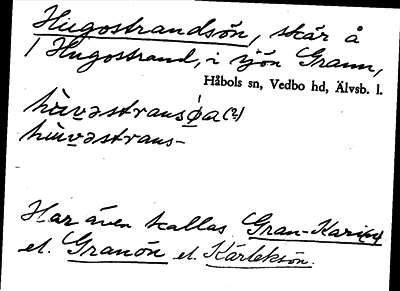 Hugostrandsön, skär å
/ Hugostrand, i sjön Grann,
Håbols sn, Vedbo hd, Älvsb. l.
hùu̲vəstransǿ̲a (2)
hùu̲vəstrans-
Har även kallas Gran-Kari(n)
el. Granön el. Kärleksön.